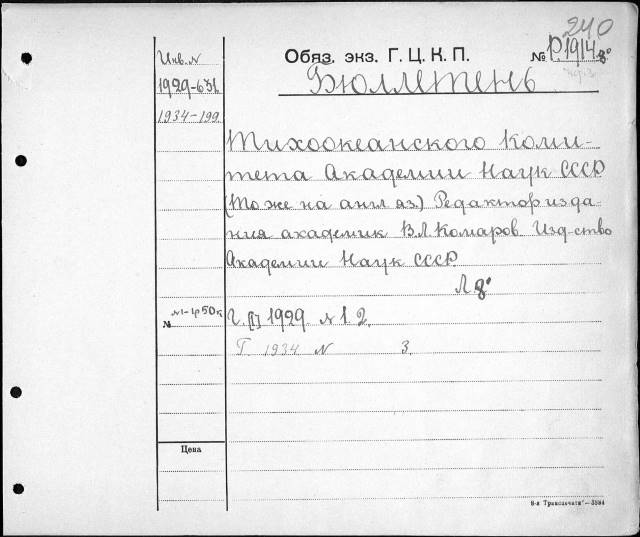 240
Инв. N
Обяз. экз. Г. Ц. К. П.
№ Р1914 8°
Бюллетень
1929-631.
1934-199.
Тихоокеанского Коми-
тета Академии Наук СССР
(То же на англ яз.) Редактор изда-
ния академик В.Л.Комаров. Изд-ство
Академии Наук СССР.
Л 8°
№ N1-1р50к
Г. [I] 1929. N 1. 2.
Г. 1934 N 3.
Цена
8-я „Транспечати“—3594